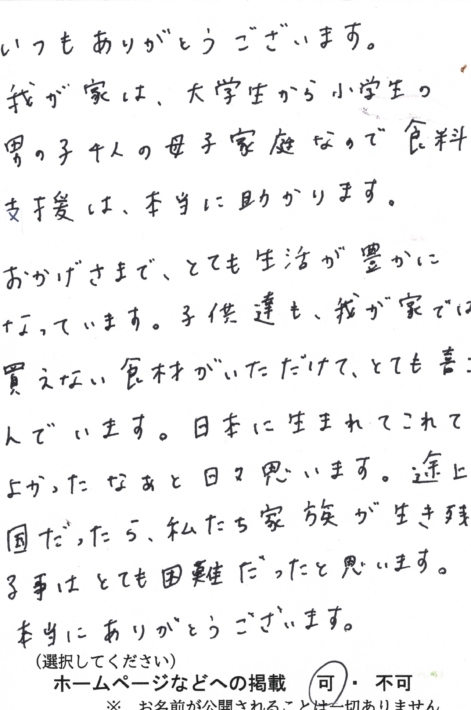 いつもありがとうございます。
我が家は、大学生から小学生の
男の子4人の母子家庭なので食料
支援は、本当に助かります。
おかげさまで、とても生活が豊かに
なっています。子供達も、我が家では
買えない食材がいただけて、とても喜こ
んでいます。日本に生まれてこれて
よかったなぁと日々思います。途上
国だったら、私たち家族が生き残
る事はとても困難だったと思います。
本当にありがとうございます。
(選択してください)
ホームページなどへの掲載 可・不可
※ お名前が公開されることは一切ありません